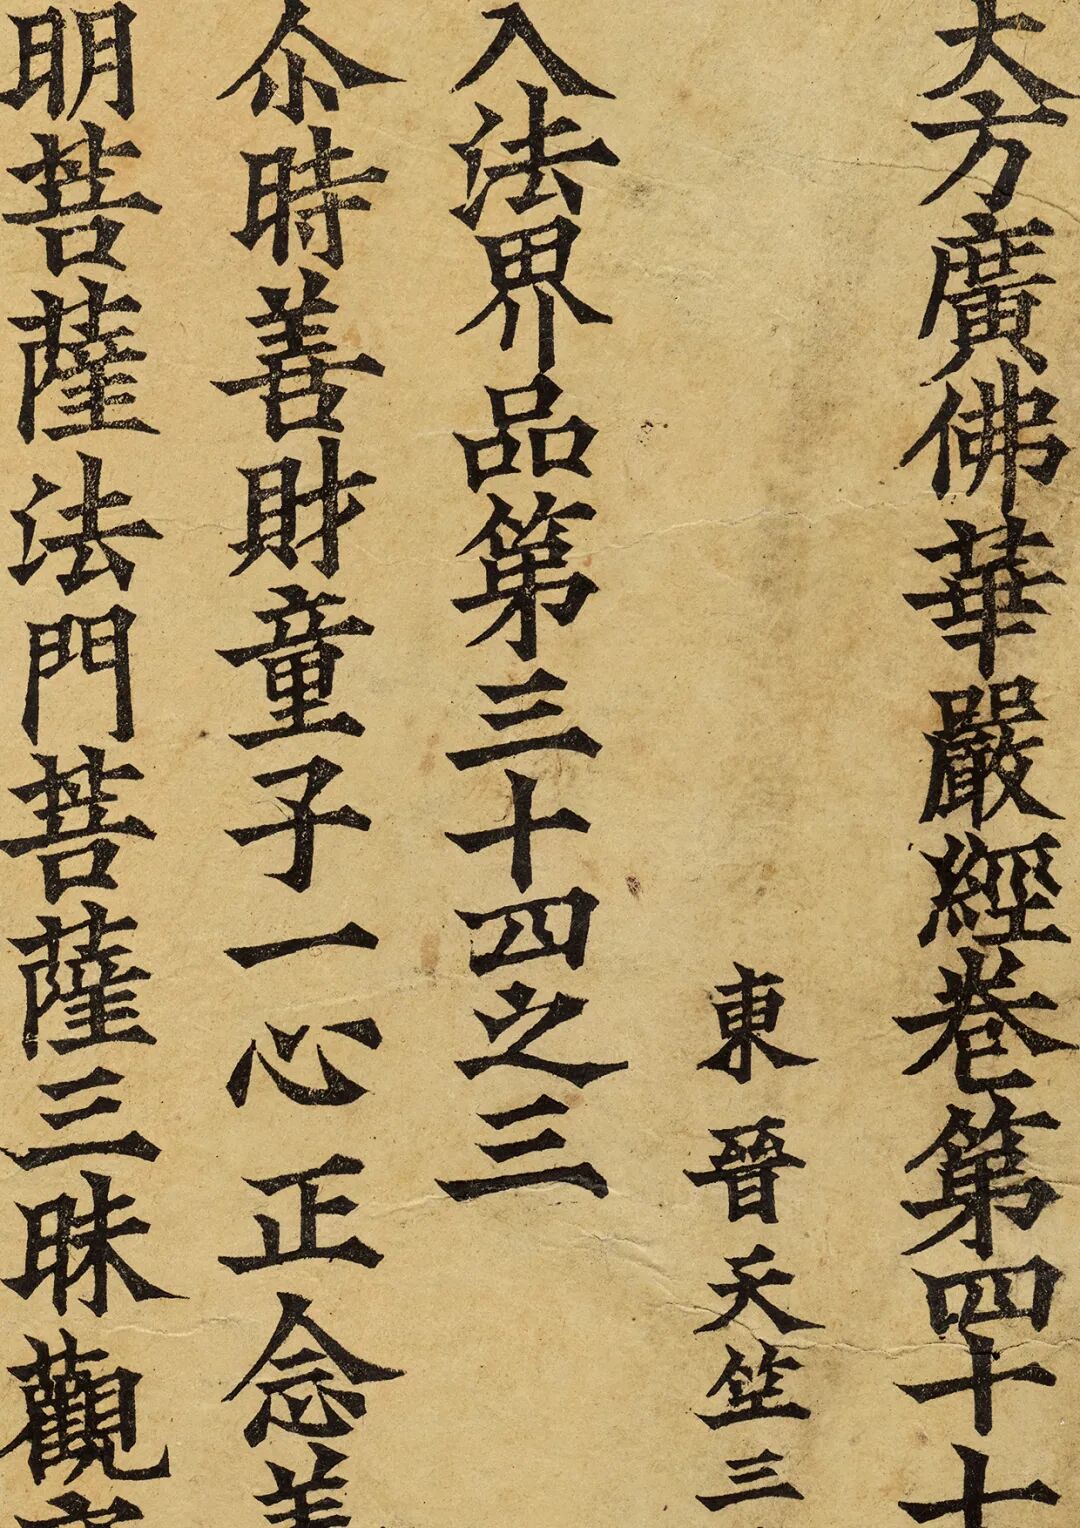 大方廣佛華嚴經卷第四十
東晉天竺三
入法界品第三十四之三
尒時善財童子一心正念善
明菩薩法門菩薩三昧觀